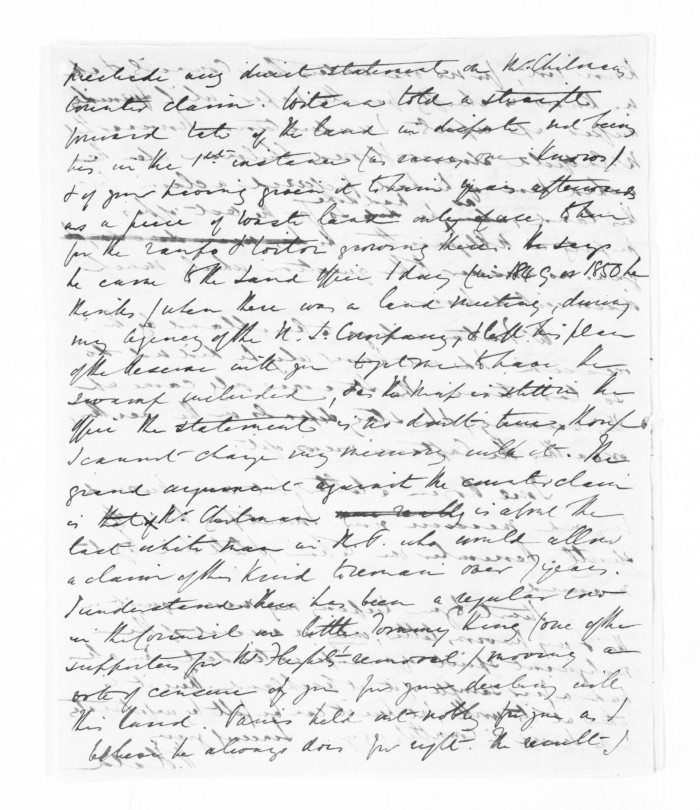 preclude any direct statements on Mr. Chilman's
counter claim. Witana told a straight
forward tale of the land in dispute not being
his in the 1st instance (as every one knows)
& of your having given it to him years afterwards
as a piece of waste land only of use to him
for the raupo & toitoi growing there. He says
he came to the Land Office 1 day (in 1849 or 1850 he
thinks) when there was a land meeting, during
my agency of the N. Z. Company, & left his plan
of the Reserve with you to get me to have the
swamp included, & as the map is still in the
Office the statement is no doubt true, though
I cannot charge my memory with it. The
grand argument against the counter claim
is that Mr. Chilman is about the
last white man in N.P. who would allow
a claim of this kind to remain over 7 years.
I understand there has been a regular row
in the Council on little Tommy King (one of the
supporters for Mr. removal) moving a
vote of censure of you for your dealing with
this land. held out nobly for you as I
believe he always does for right. The result I